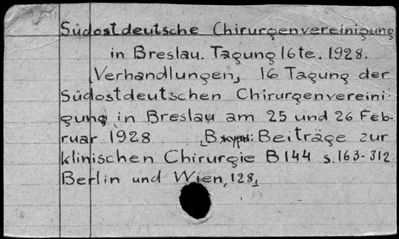 Südostdeutsche Chirurgenvereinigung
in Breslau. Tagung 16te. 1928.
„Verhandlungen„ 16 Tagung der
Südostdeutschen Chirurgenvereini-
gung in Breslau am 25 und 26 Feb-
ruar 1928 В журн: Beiträge zur
klinischen Chirurgie B 144 s. 163-312
Berlin und Wien, 128,